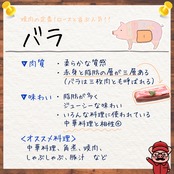 焼肉の定番!ロースと並ぶ人気!!
バラ
▼肉質 ・柔らかな質感
・赤身と脂肪の層が三層ある
(バラは三枚肉とも呼ばれる)
▼味わい・脂肪が多く
ジューシーな味わい
・いろんな料理に使われている
中華料理と相性◎
<オススメ料理>
中華料理、角煮、焼肉、
しゃぶしゃぶ、豚汁 など